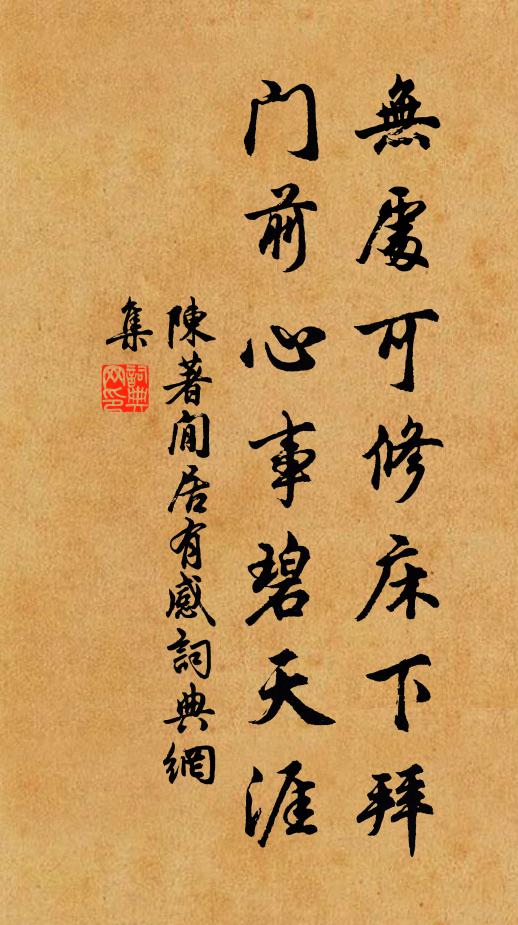 無處可修床下拜
门前心事碧天涯
陳著閒居有感詞典網
集
詞典
网印